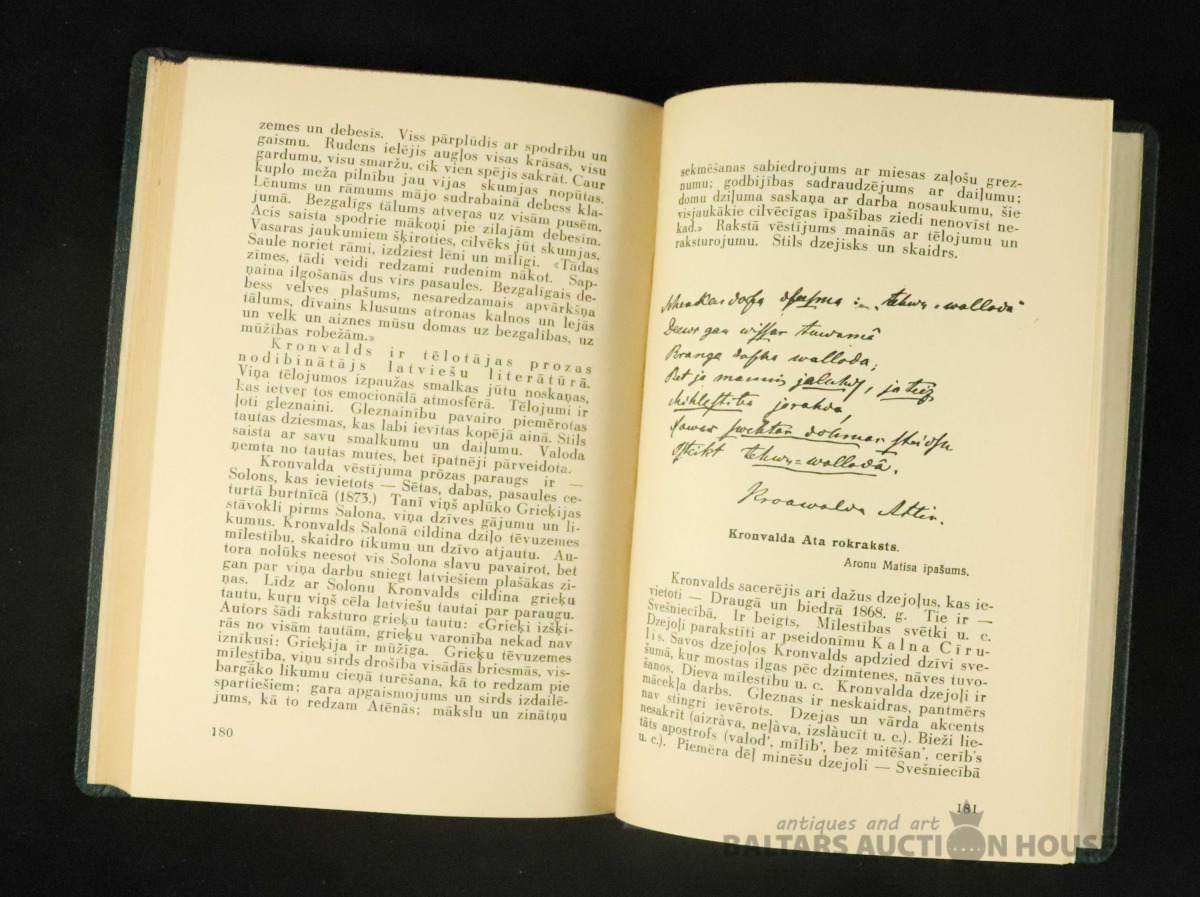 zemes un debesis. Viss pārplūdis ar spodrību un
gaismu. Rudens ielējis augļos visas krāsas, visu
gardumu, visu smaržu, cik vien spējis sakrāt. Caur
kuplo meža pilnību jau vijas skumjas nopūtas.
Lēnums un rāmums mājo sudrabainā debess kla-
jumā. Bezgalīgs tālums atveŗas uz visām pusēm.
Acis saista spodrie mākoņi pie zilajām debesīm.
Vasaras jaukumiem šķiroties, cilvēks jūt skumjas.
Saule noriet rāmi, izdziest lēni un mīlīgi. «Tādas
zīmes, tādi veidi redzami rudenim nākot. Sap-
ņaina ilgošanās dus virs pasaules. Bezgalīgais de-
bess velves plašums, nesaredzamais apvārkšņa
tālums, dīvains klusums atronas kalnos un lejās
un velk un aiznes mūsu domas uz bezgalības, uz
mūžības robežām.»
Kronvalds ir tēlotājas prozas
nodibinātājs latviešu literātūrā.
Viņa tēlojumos izpaužas smalkas jūtu noskaņas,
kas ietveŗ tos emocionālā atmosfērā. Tēlojumi ir
ļoti gleznaini. Gleznainību pavairo piemērotas
tautas dziesmas, kas labi ievītas kopējā ainā. Stils
saista ar savu smalkumu un daiļumu. Valoda
ņemta no tautas mutes, bet īpatnēji pārveidota.
Kronvalda vēstījuma prōzas paraugs ir —
Solons, kas ievietots — Sētas, dabas, pasaules ce-
turtā burtnīcā (1873.) Tanī viņš aplūko Grieķijas
stāvokli pirms Salona, viņa dzīves gājumu un li-
kumus. Kronvalds Salonā cildina dziļo tēvuzemes
mīlestību, skaidro tikumu un dzīvo atjautu. Au-
tora nolūks neesot vis Solona slavu pavairot, bet
gan par viņa darbu sniegt latviešiem plašākas zi-
ņas. Līdz ar Solonu Kronvalds cildina grieķu
tautu, kuŗu viņš cēla latviešu tautai par paraugu.
Autors šādi raksturo grieķu tautu: «Grieķi izšķi-
rās no visām tautām, grieķu varonība nekad nav
iznīkusi: Grieķija ir mūžīga. Grieķu tēvuzemes
mīlestība, viņu sirds drošība visādās briesmās, vis-
bargāko likumu cieņā turēšana, kā to redzam pie
spartiešiem; gara apgaismojums un sirds izdailē-
jums, kā to redzam Atēnās; mākslu un zinātņu
180
sekmēšanas sabiedrojums ar miesas zaļošu grez-
numu; godbijības sadraudzējums ar daiļumu;
domu dziļuma saskaņa ar darba nosaukumu, šie
visjaukākie cilvēcīgas īpašības ziedi nenovīst ne-
kad.» Rakstā vēstījums mainās ar tēlojumu un
raksturojumu. Stils dzejisks un skaidrs.
tehwu-wallodâ
Deews gan wissur tuwumâ
walloda;
Bet ja mannis jaluhds, ja teiz
Mihlestiba jarahda,
Isteikt tehwu-wallodâ.
Kronwalda Attis.
Kronvalda Ata rokraksts.
Aronu Matisa īpašums.
Kronvalds sacerējis ari dažus dzejoļus, kas ie-
vietoti — Draugā un biedrā 1868. g. Tie ir —
Svešniecībā, Ir beigts, Mīlestības svētki u. c.
Dzejoļi parakstīti ar pseidonīmu Kalna Cīru-
lis. Savos dzejoļos Kronvalds apdzied dzīvi sve-
šumā, kur mostas ilgas pēc dzimtenes, nāves tuvo-
šanos, Dieva mīlestību u. c. Kronvalda dzejoļi ir
mācekļa darbs. Gleznas ir neskaidras, pantmērs
nav stingri ievērots. Dzejas un vārda akcents
nesakrīt (aizràva, neļàva, izslàucīt u. c.). Bieži lie-
tāts apostrofs (valod', mīlīb', bez mitēšan', cerīb's
u. c.). Piemēra dēļ minēšu dzejoli — Svešniecībā
181
antiques and art
BALTARS AUCTION HOUSE